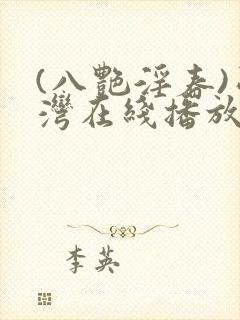 (八艷淫春)
灣在綫播放
李英